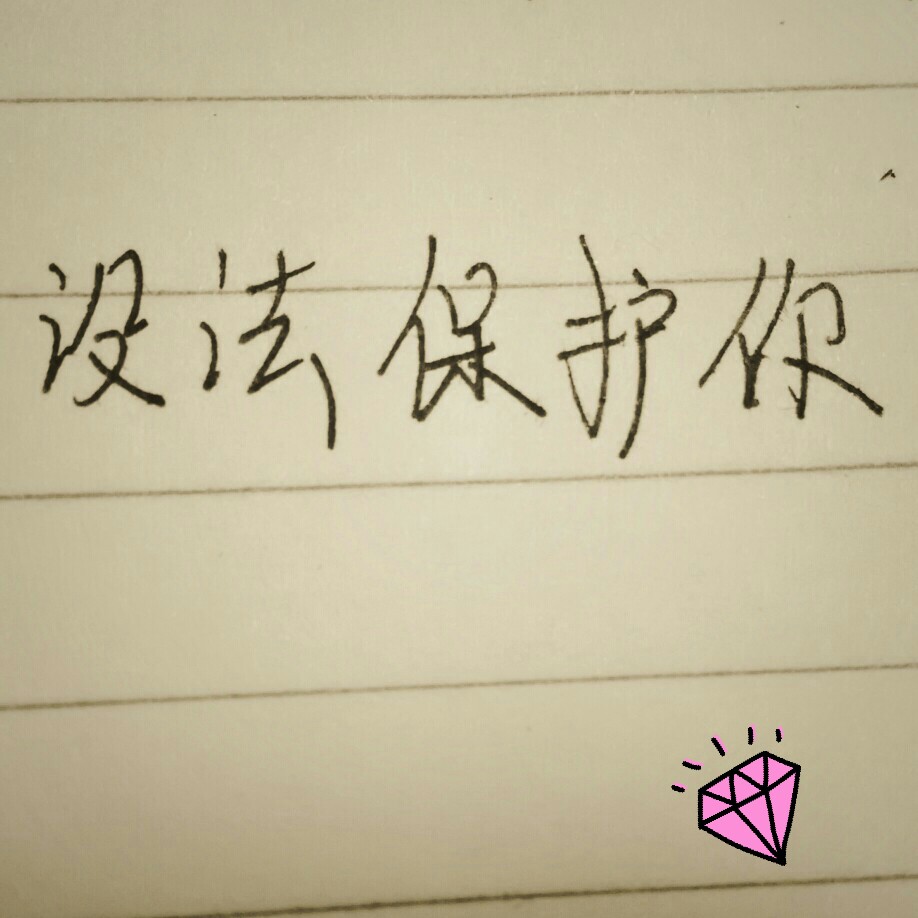 没法保护你